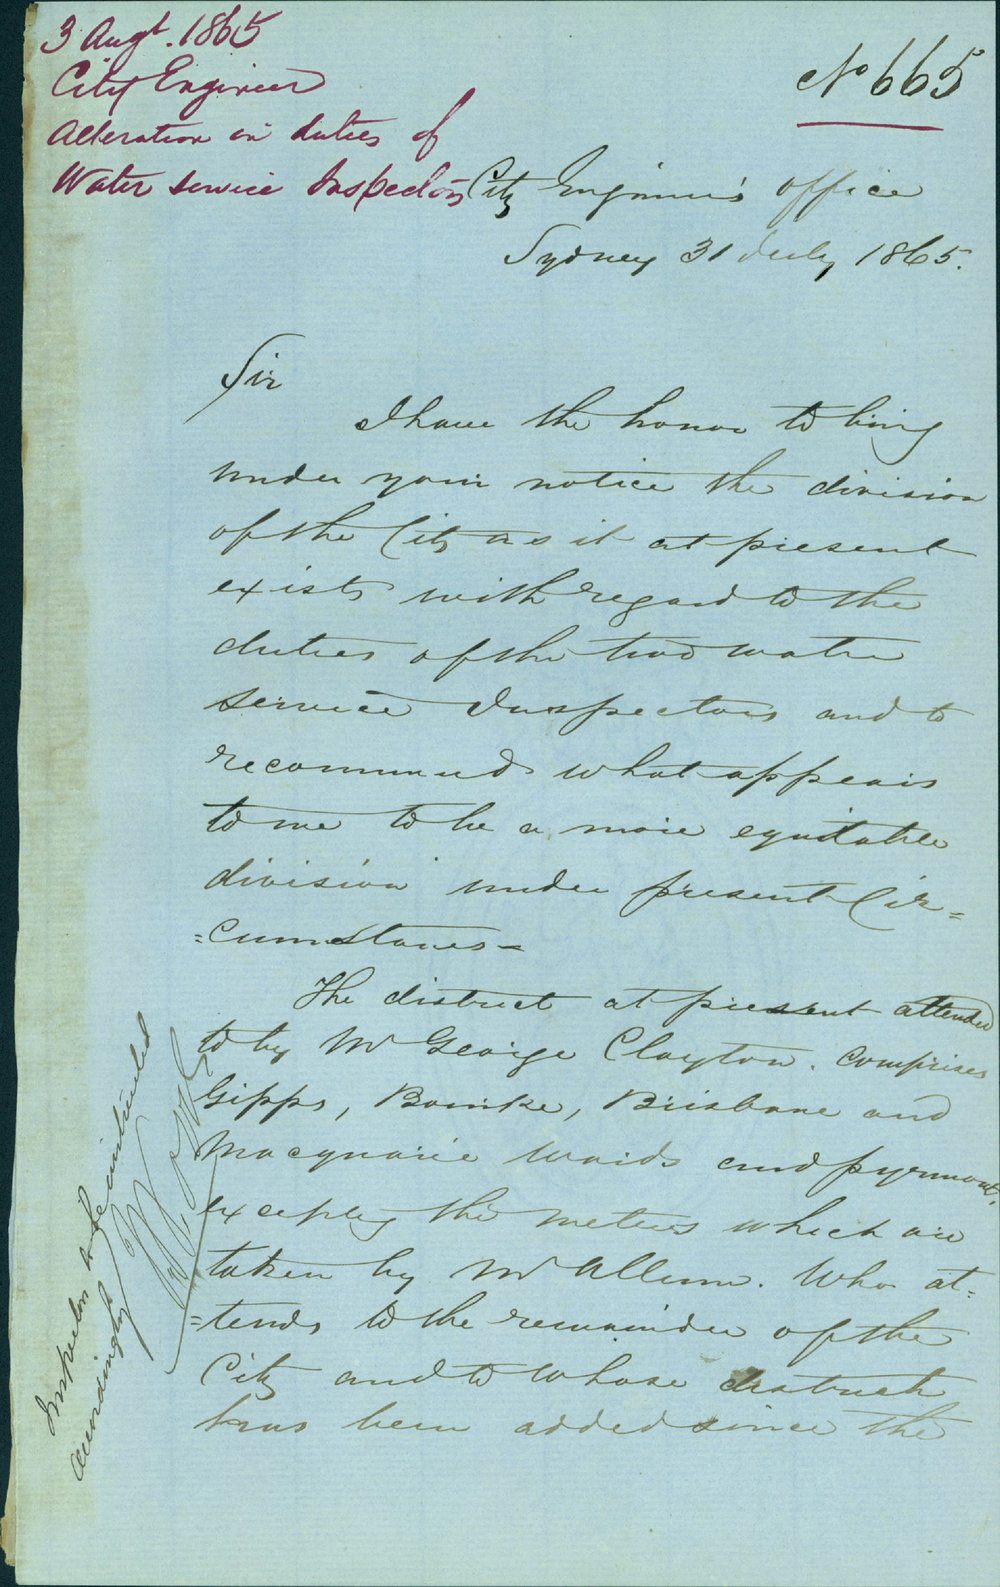 3 Augt. 1865
City Engineer
Alteration in duties of
Water Service Inspectors
No 665
City Engineer's office
Sydney 31 July 1865.
Sir
I have the honor to bring
under your notice the division
of the City as it at present
exists with regard to the
duties of the two water
service Inspectors and to
recommend what appears
to me to be a more equitable
division under present Cir=
=cumstances-
The district at present attended
to by Mr George Clayton. comprises
Gipps, Bourke, Brisbane and
Macquarie Wards and pyrmont,
excepting the meters which are
taken by Mr Allum. Who at=
=tends to the remainder of the
City and to whose district
has been added since the
Inspectors to be instructed
accordingly